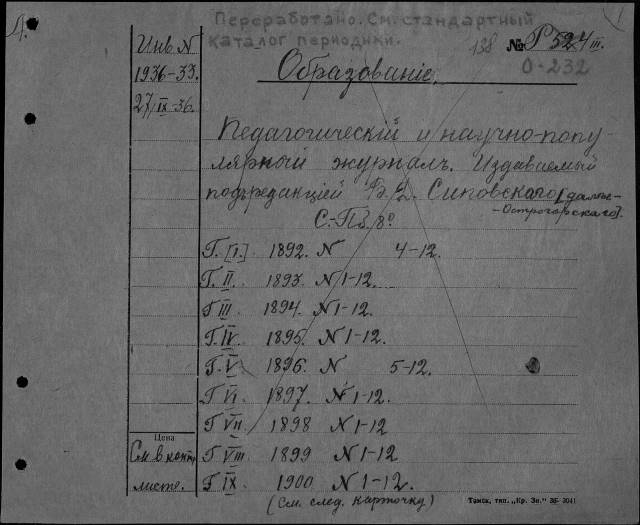 Переработано. См. стандартный
каталог периодики.
Инв. N
1936-33.
27/IX-36.
138 № Р 524 III.
0-232
Образованіе.
Педагогическій и научно-попу-
лярный журналъ. Издаваемый
подъ редакціей В. Д. Сиповскаго [далѣе-
-Острогорскаго].
С.-Пб. 8°
Г. [I.] 1892. N 4-12.
Г. II. 1893. N 1-12.
Г III 1894. N 1-12.
Г. IV. 1895. N 1-12.
Г. V 1896. N 5-12.
Г VI 1897. N 1-12.
Г VII 1898 N 1-12
Г VIII 1899 N 1-12
Г IX 1900 N 1-12.
Цена
См в конт
листе.
(См. след. карточку)
Томск, тип. „Кр. Зн." 36- 3041